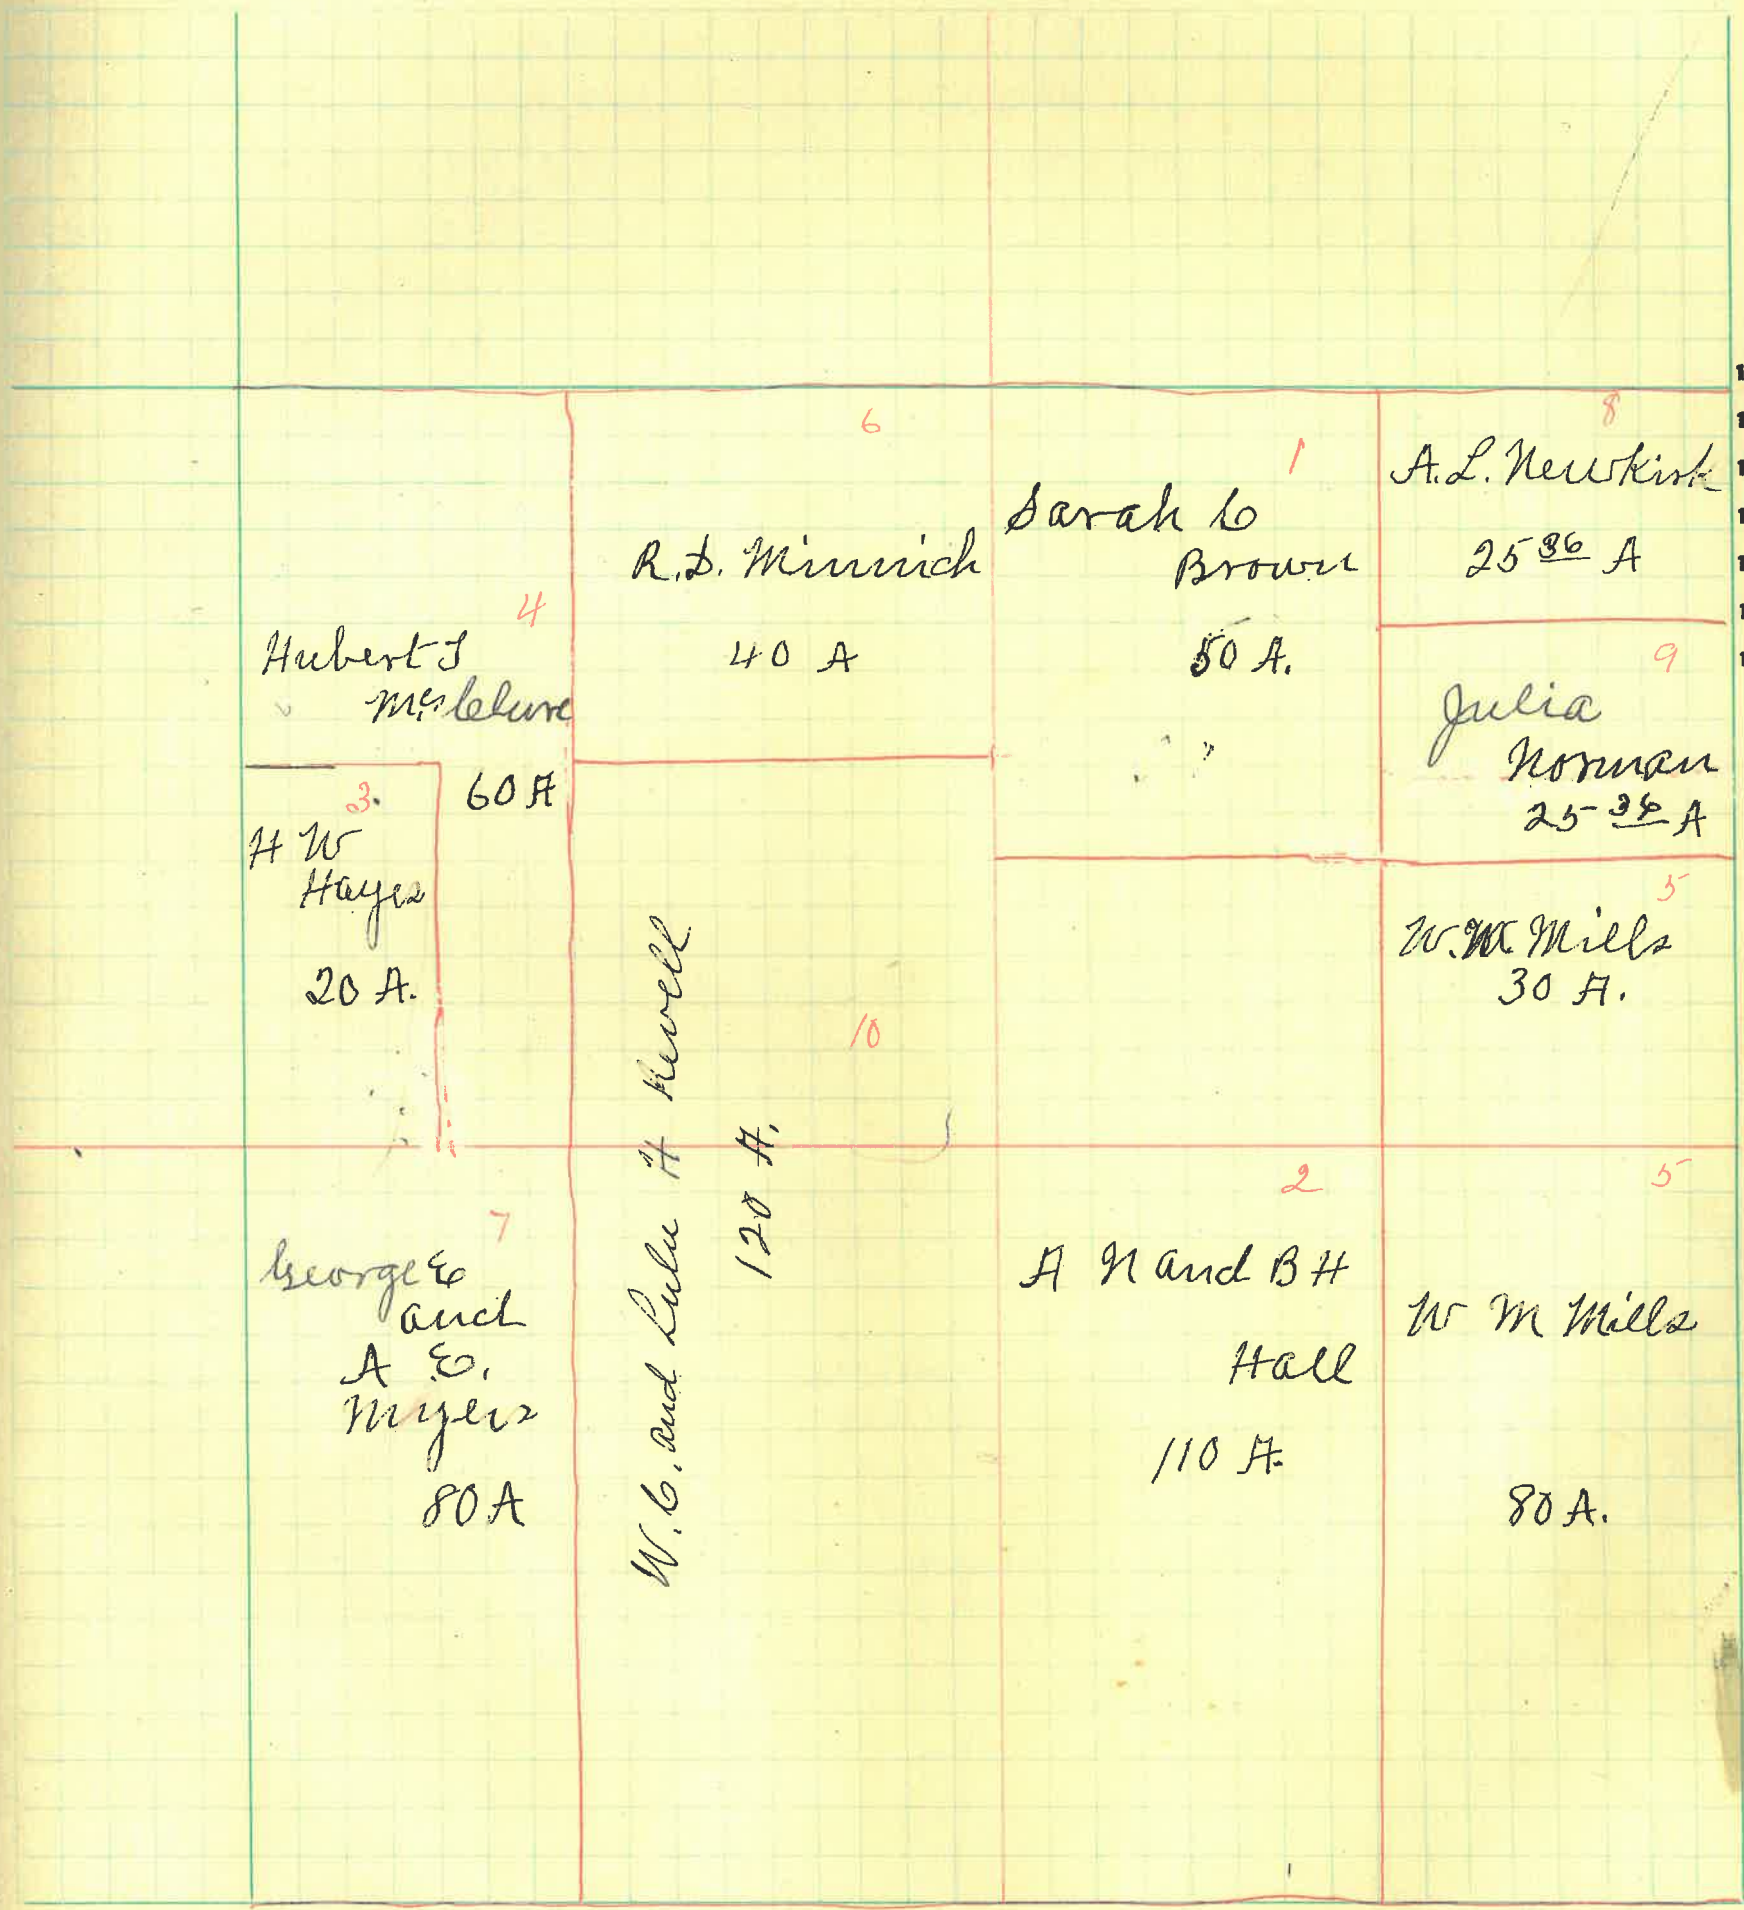 6
R.D. Minnich
40 A
1
Sarah C
Brown
50 A.
8
A.L. Newkirk
25 36 A
4
Hubert
McClure
60 A
9
Julia
Norman
25 36 A
3.
H W
Hayes
20 A.
5
W.M. Mills
30 A.
10
W.C. and Lulu H
120 A.
7
George E
and
A E.
Myers
80 A
2
A N and B H
Hall
110 A.
5
W M Mills
80 A.